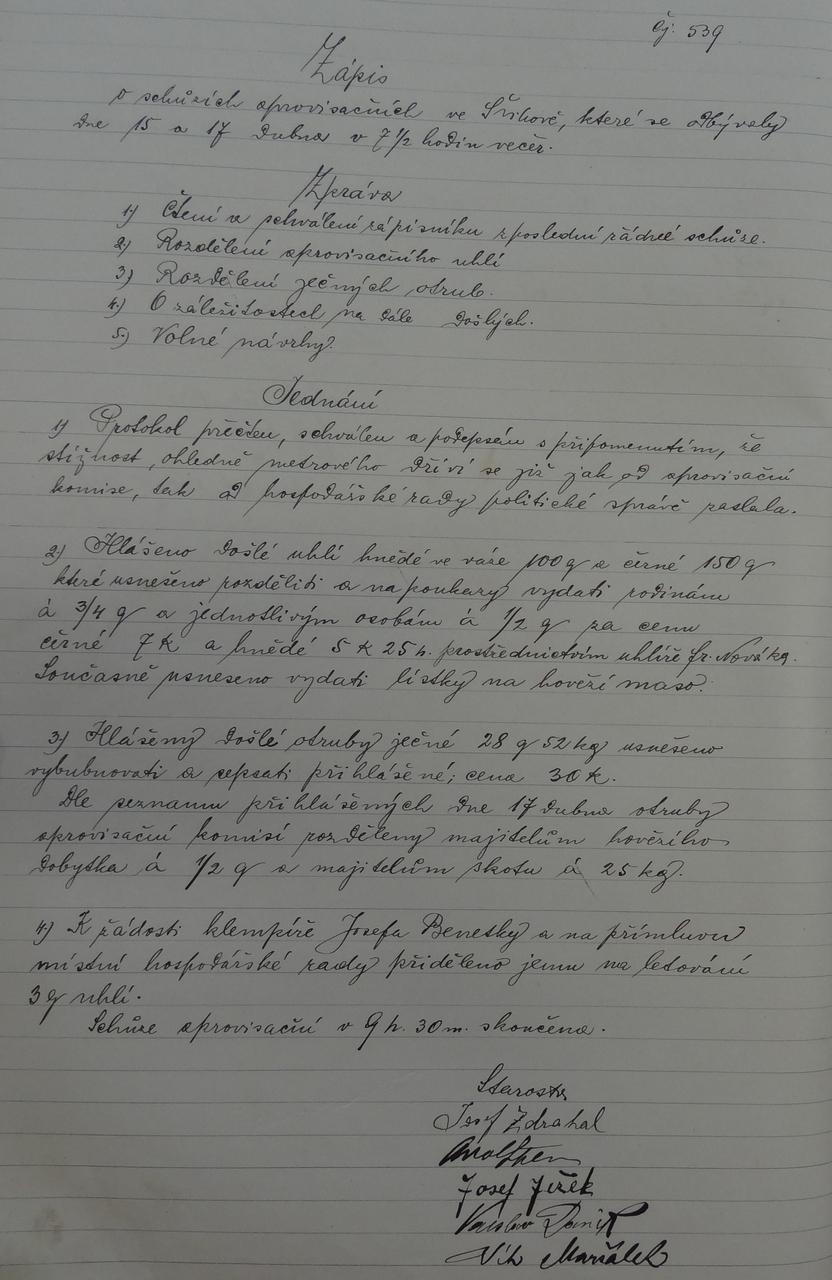 Čj. 539
Zápis
o schůzích aprovisačních ve Štikově, které se odbývaly
dne 15 a 17 dubna v 7 1/2 hodin večer.
Zpráva
1) Čtení a schválení zápisníku z poslední řádné schůze.
2) Rozdělení aprovisačního uhlí
3) Rozdělení ječných otrub.
4.) O záležitostech na dále došlých.
5.) Volné návrhy.
Jednání
1) Protokol přečten, schválen a podepsán s připomenutím, že
stížnost, ohledně metrového dříví se již jak od aprovisační
komise, tak od hospodářské rady politické správě zaslala.
2) Hlášeno došlé uhlí hnědé ve váze 100 q a černé 150 q
které usnešeno rozděliti a na poukazy vydati rodinám
á 3/4 q a jednotlivým osobám á 1/2 q za cenu
černé 7 K a hnědé 5 K 25 h. prostřednictvím uhlíře Fr. Nováka.
Současně usneseno vydati lístky na hovězí maso.
3) Hlášeny došlé otruby ječné 28 q 52 kg usnešeno
vybubnovati a sepsati přihlášené; cena 30 K.
Dle seznamu přihlášených dne 17 dubna otruby
aprovisační komisí rozděleny majitelům hovězího
dobytka á 1/2 q a majitelům skotu á 25 kg.
4.) K žádosti klempíře Josefa Benetky a na přímluvu
místní hospodářské rady přiděleno jemu na letování
3 q uhlí.
Schůze aprovisační v 9 h. 30 m. skončena.
Starosta
Josef Zdrahal
Josef Ježek
Václav
Vih Maršálek